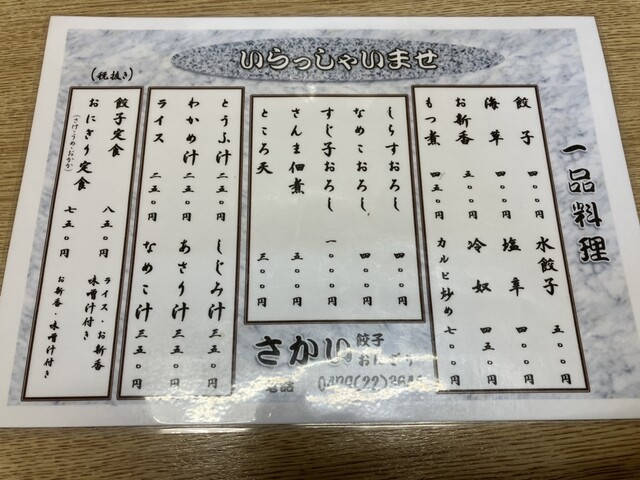 いらっしゃいませ
(税抜き)
一品料理
餃子 四〇〇円
海草 四〇〇円
お新香 五〇円
もつ煮 四五〇円
水餃子 五〇〇円
塩辛 四五〇円
冷奴 四五〇円
カルビ炒め 七〇〇円
しらすおろし 四〇〇円
なめこおろし 四〇〇円
すじ子おろし 一〇〇〇円
さんま佃煮 五〇〇円
ところ天 三〇〇円
とうふ汁 二五〇円
わかめ汁 二五〇円
ライス 二五〇円
しじみ汁 三五〇円
あさり汁 三五〇円
なめこ汁 三五〇円
餃子定食 八五〇円
ライス・お新香
味噌汁付き
おにぎり定食 七五〇円
(さけ・うめ・おかか)
お新香・味噌汁付き
さかい
餃子
おにぎり
電話